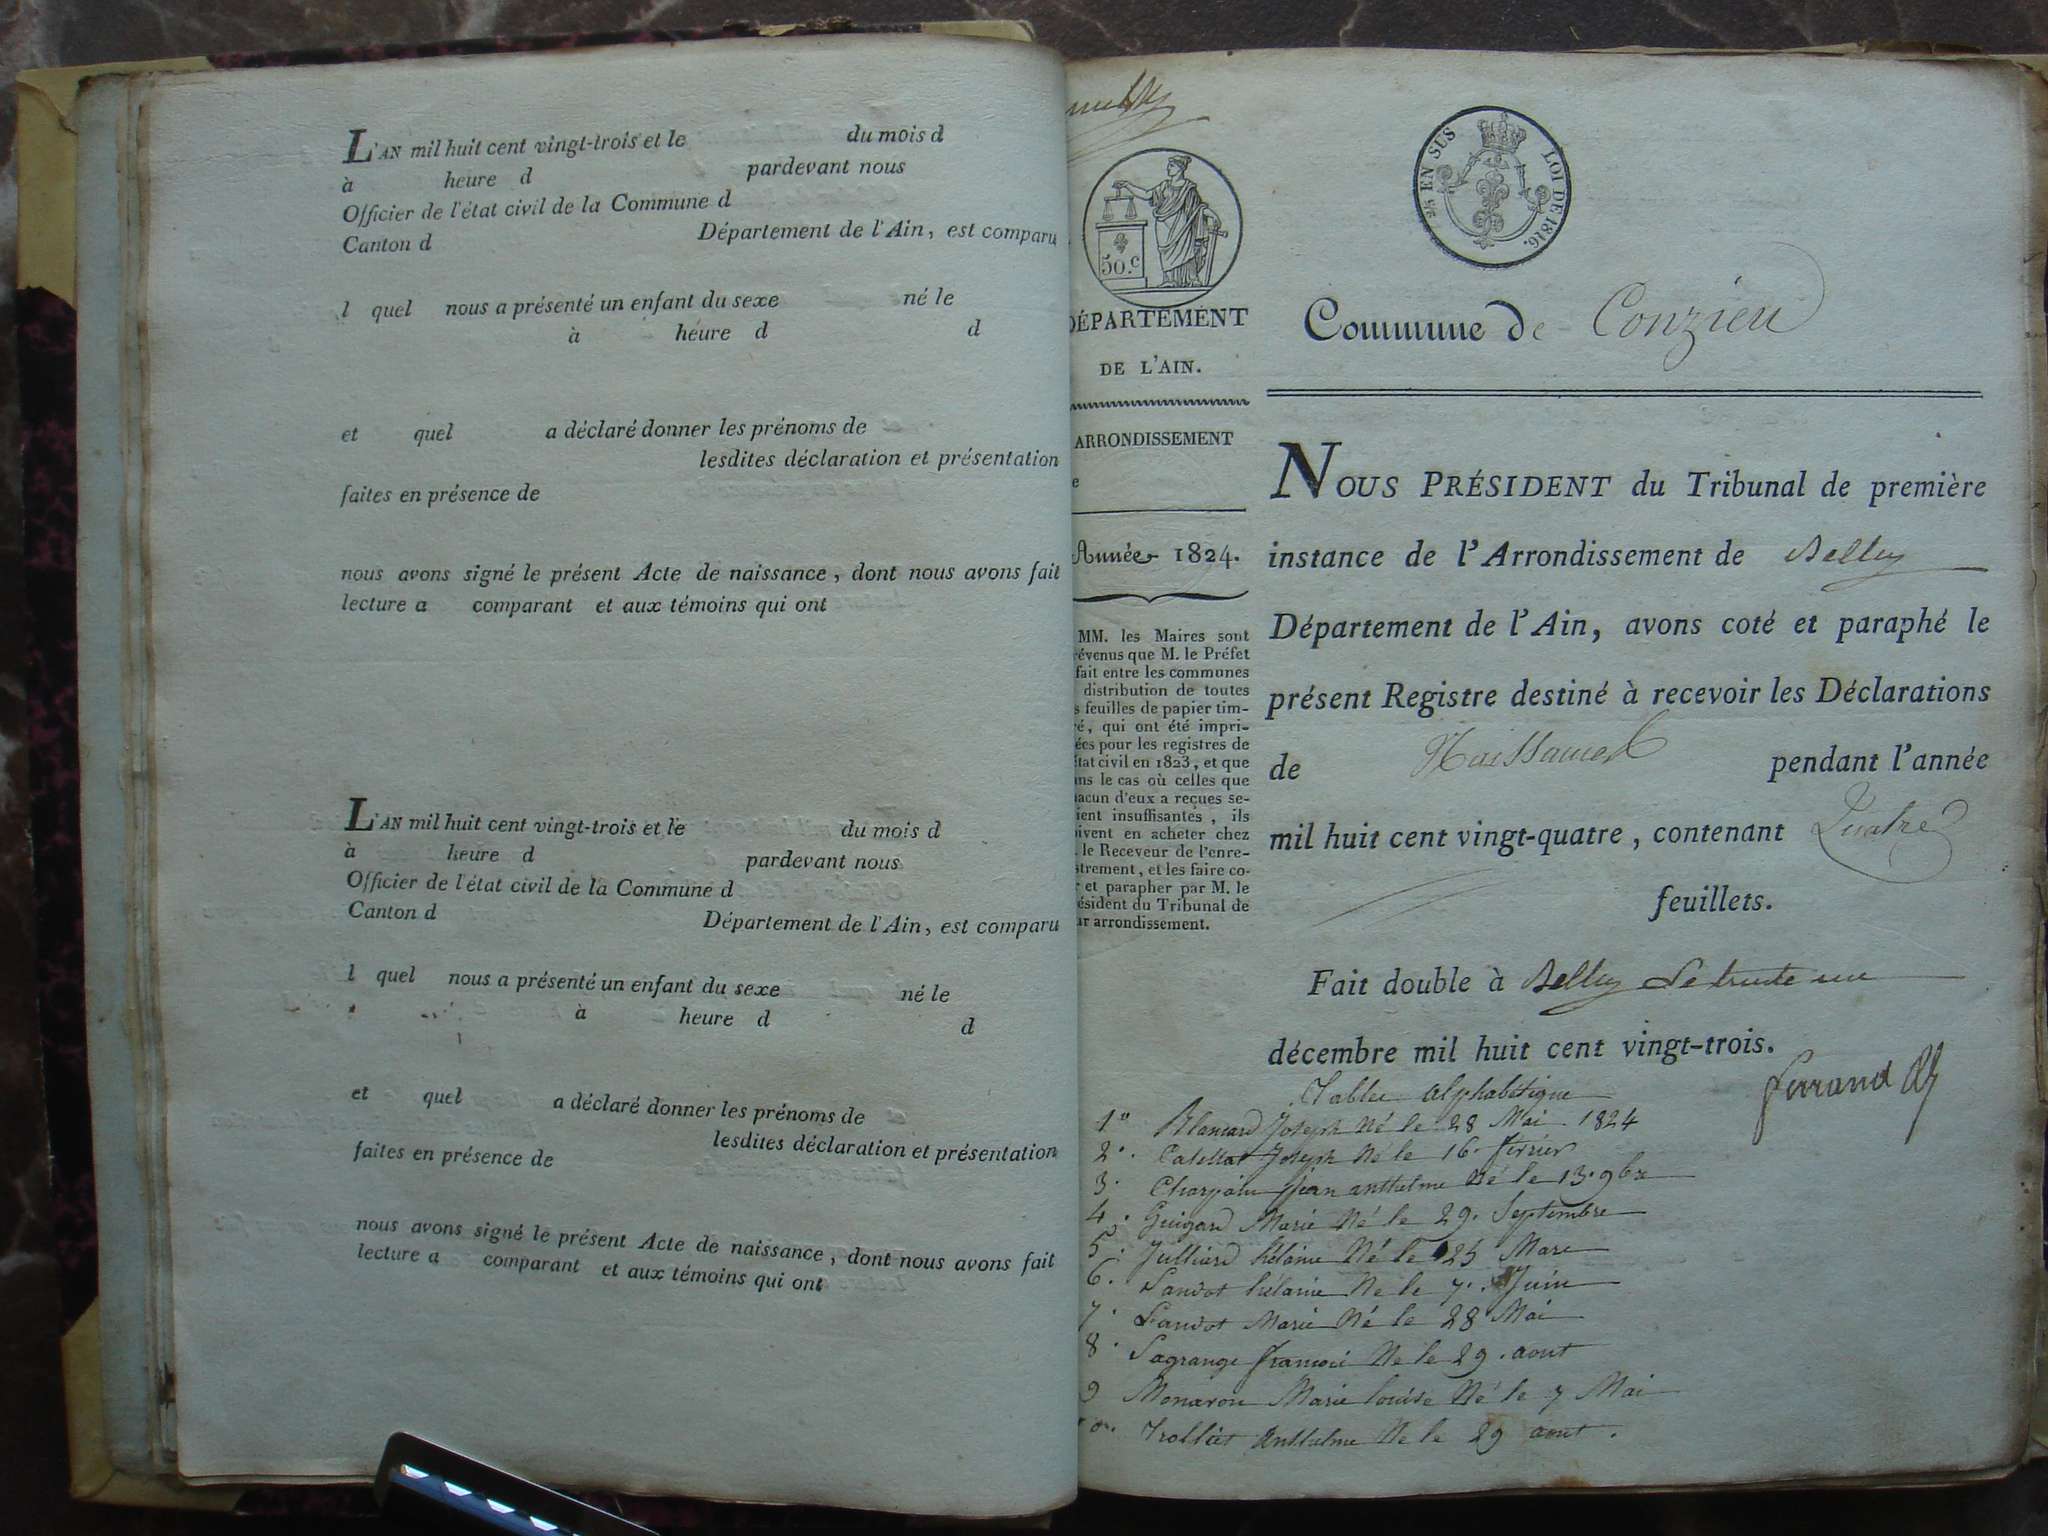 L'AN mil huit cent vingt-trois et le du mois d
à heure d pardevant nous
Officier de l'état civil de la Commune d
Canton d Département de l'Ain, est comparu
l quel nous a présenté un enfant du sexe né le
à heure d d
et quel a déclaré donner les prénoms de
lesdites déclaration et présentation
faites en présence de
nous avons signé le présent Acte de naissance, dont nous avons fait
lecture a comparant et aux témoins qui ont
L'AN mil huit cent vingt-trois et le du mois d
à heure d pardevant nous
Officier de l'état civil de la Commune d
Canton d Département de l'Ain, est comparu
l quel nous a présenté un enfant du sexe né le
à heure d d
et quel a déclaré donner les prénoms de
lesdites déclaration et présentation
faites en présence de
nous avons signé le présent Acte de naissance, dont nous avons fait
lecture a comparant et aux témoins qui ont
50.c
DÉPARTEMENT
DE L'AIN.
ARRONDISSEMENT
e
Année 1824.
MM. les Maires sont
révenus que M. le Préfet
fait entre les communes
distribution de toutes
s feuilles de papier tim-
ré, qui ont été impri-
ées pour les registres de
état civil en 1823, et que
ans le cas où celles que
hacun d'eux a reçues se-
ient insuffisantes, ils
oivent en acheter chez
. le Receveur de l'enre-
strement, et les faire co-
r et parapher par M. le
ésident du Tribunal de
ur arrondissement.
25 EN SUS LOI DE 1816.
Commune de Conzieu
NOUS PRÉSIDENT du Tribunal de première
instance de l'Arrondissement de Belley
Département de l'Ain, avons coté et paraphé le
présent Registre destiné à recevoir les Déclarations
de Naissances pendant l'année
mil huit cent vingt-quatre, contenant Quatre
feuillets.
Fait double à Belley le trente un
décembre mil huit cent vingt-trois.
Ferrand
Tables alphabétique
1° Blancard Joseph Né le 28 Mai 1824
2°. Catellat Joseph Né le 16. févrièr
3. Jean anthelme Né le 13. 9bre
4. Guigard Marie Né le 29. Septembre
5. Julliard hélaine Né le 25 Mars
6. Landot hélaine Né le 7. Juin
7. Landot Marie Né le 28 Mai
8. Lagrange Né le 29. aout
9 Marie louise Né le 7 Mai
Trolliet Anthelme Né le 29 aout.